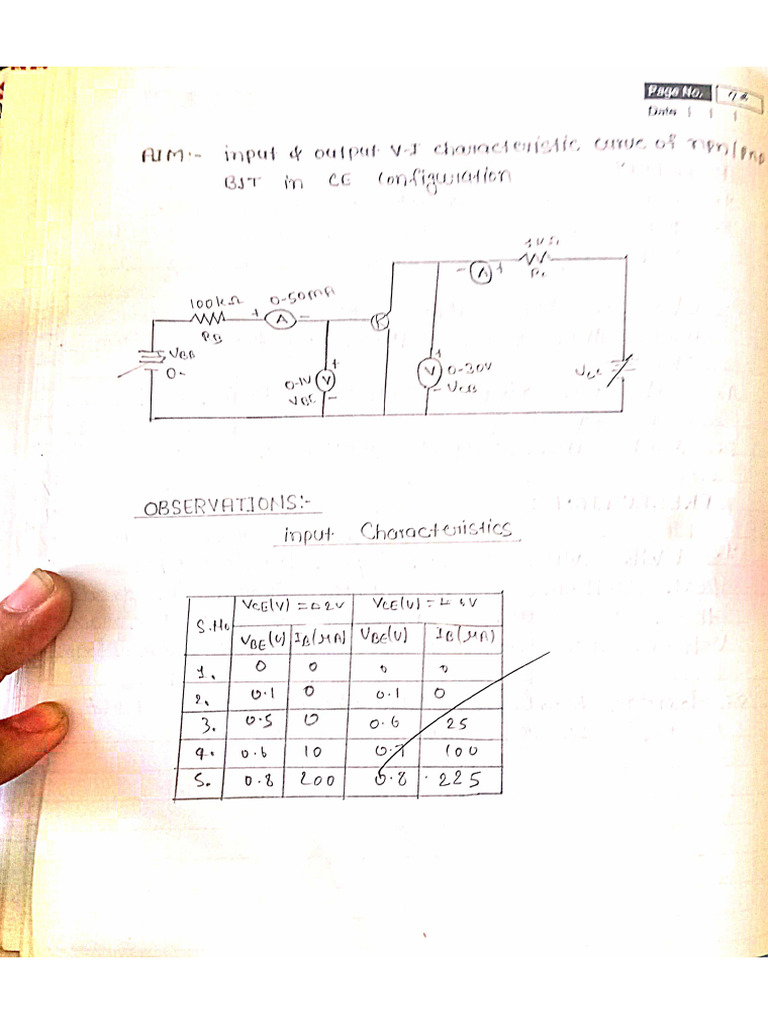 Page No.
Date
AIM:- input & output V-I characteristic curve of npn/pnp
BJT in CE Configuration
100kΩ
0-50mA
+ A -
RB
VBB
0-
0-1V
VBE
+
V
-
- A +
1kΩ
+
V
0-30V
-
VCC
OBSERVATIONS:-
input Characteristics
S.No VCE(V) = 2V VCE(V) =
VBE(V) IB(μA) VBE(V) IB(μA)
1. 0 0 0 0
2. 0.1 0 0.1 0
3. 0.5 0 0.6 25
4. 0.6 10 100
5. 0.8 200 0.8 225